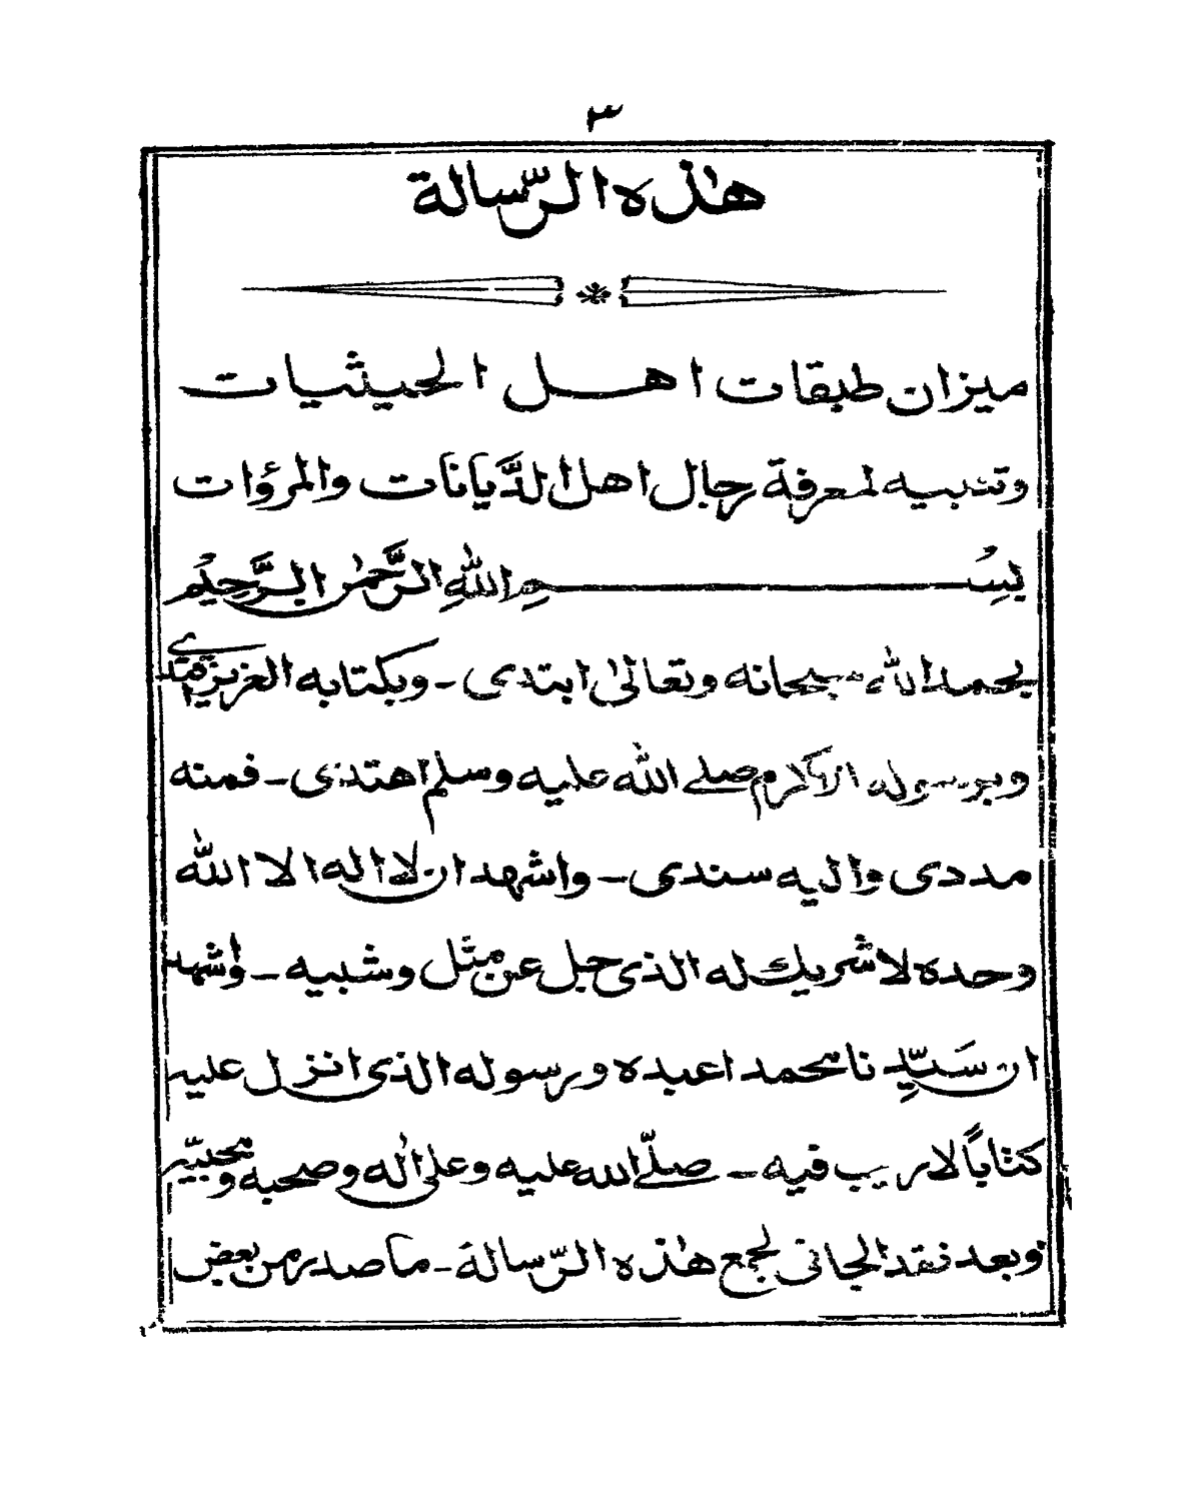 ٣
هٰذه الرّسالة
ميزان طبقات اهل الحيثيات
وتنبيه لمعرفة رجال اهل الدَّيانات والمرؤات
بِسْمِ اللّٰهِ الرَّحْمٰنِ الرَّحِيْم
بحمد الله سبحانه وتعالىٰ ابتدى - وبكتابه العزيز اقتدى
وبرسوله الاكرم صلى الله عليه وسلم اهتدى - فمنه
مددى واليه سندى - واشهد ان لا اله الا الله
وحده لا شريك له الذى جل عن مثل وشبيه - واشهد
ان سَيّدنا محمدا عبده ورسوله الذى انزل عليه
كتاباً لا ريب فيه - صلّى الله عليه وعلى اٰله وصحبه ومحبيّه
وبعد فقد الجانى لجمع هٰذه الرّسالة - ما صدر من بعض